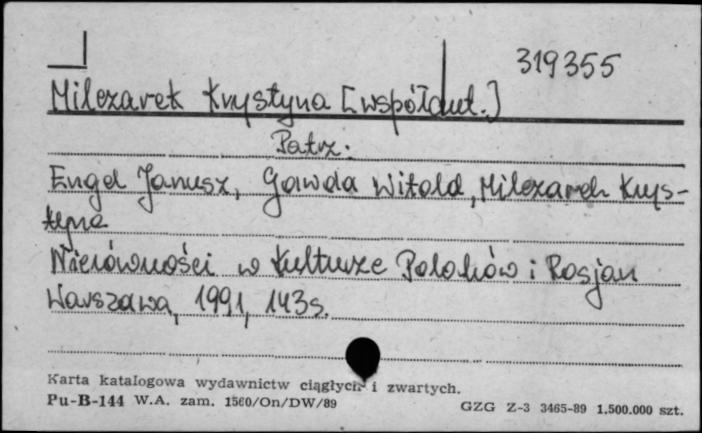 319355
Milczarek Krystyna [współaut.]
Patrz:
Engel Janusz, Gawda Witold, Milczarek Krys-
tyna
Nierówności w kulturze Polaków i Rosjan
Warszawa, 1991, 143s.
Karta katalogowa wydawnictw ciągłych i zwartych.
Pu-B-144 W.A. zam. 1560/On/DW/89
GZG Z-3 3465-89 1.500.000 szt.